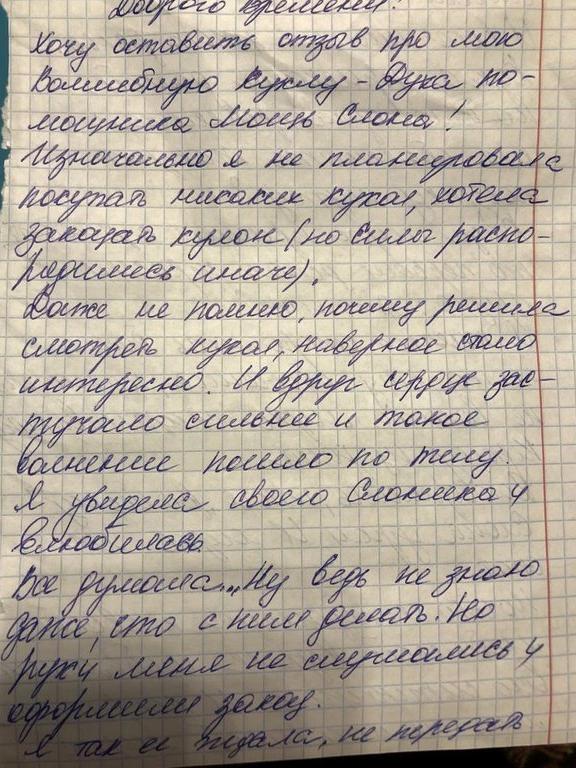 Доброго времени!
Хочу оставить отзыв про мою
Волшебную Куклу - Духа по-
мощника Мощь Слона!
Изначально я не планировала
покупать никаких кукол, хотела
заказать кулон (но Силы распо-
рядились иначе).
Даже не помню, почему решила
смотреть кукол, наверное стало
интересно. И вдруг сердце зас-
тучало сильнее и такое
волнение пошло по телу.
Я увидела своего Слоника и
влюбилась.
Все думала... Ну ведь не знаю
даже, что с ним делать. Но
руки меня не слушались и
оформили заказ.
Я так её ждала, не передать